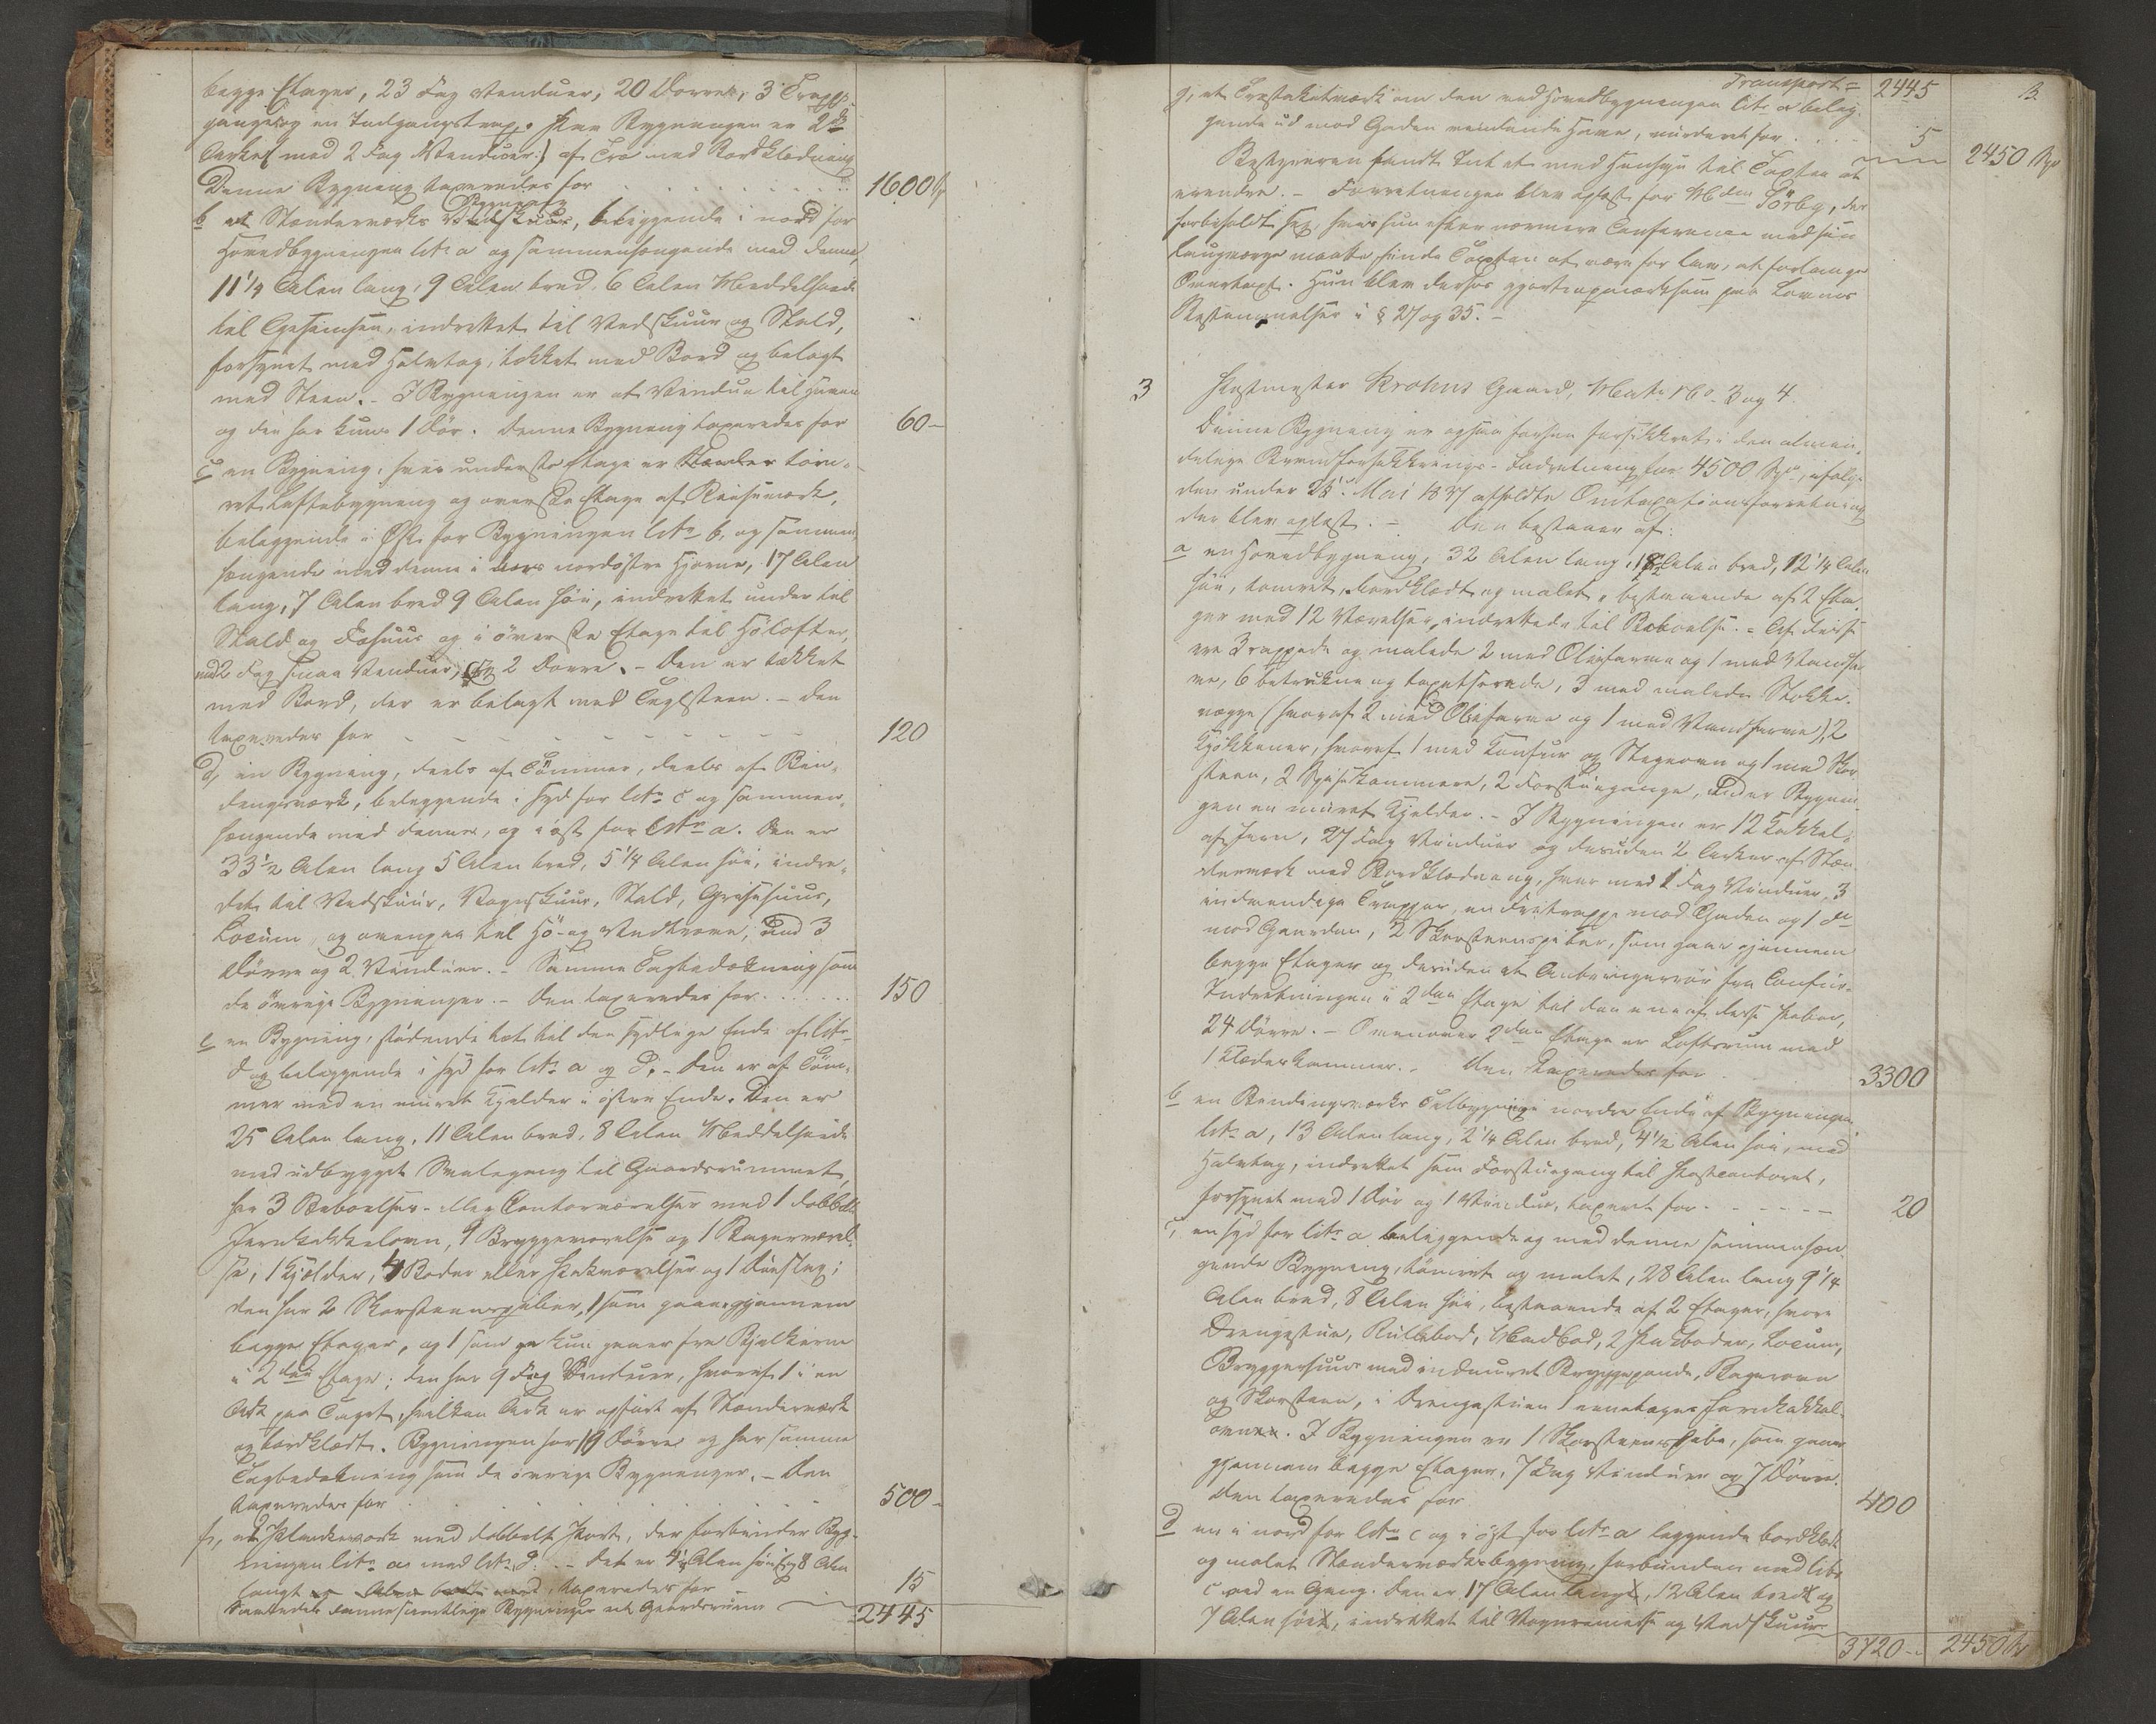 begge Etager, 23 Fag Vinduer, 20 Dørre, 3 Trappe-
gange og en Indgangstrap. Paa Bygningen er 2de
Arker med 2 Fag Vinduer) af Træ med Bordklædning
Denne Bygning taxeredes for 1600 Sp
b et Stænderværks Bygning Vedskuur, beliggende i nord for
Hovedbygningen litr. a og sammenhængende med denne,
11 1/4 Alen lang, 9 Alen bred, 6 Alen Middelhøide
til Gesimsen, indrettet til Vedskuur og Stald,
forsynet med Halvtag, tækket med Bord og belagt
med Steen. - I Bygningen er et Vindue til Haven
og den har kun 1 Dør. Denne Bygning taxeredes for 60 -
c en Bygning, hvis underste Etage er tøm-
ret Laftebygning og øverste Etage af Reisværk,
beliggende i Øst for Bygningen litr. b, og sammen-
hængende med denne i nordøstre Hjørne, 17 Alen
lang, 7 Alen bred 9 Alen høi, indrettet under til
Stald og Fæhuus og i øverste Etage til Høloft,
med 2 Fag smaa Vinduer, og 2 Dørre. - Den er tækket
med Bord, der er belagt med Teglsteen. - Den
taxeredes for 120
d, en Bygning, deels af Tømmer, deels af Bin-
dingsværk, beliggende i Syd for litr. c og sammen-
hængende med denne, og i øst for litr. a. Den er
33 1/2 Alen lang 5 Alen bred, 5 1/4 Alen høi, indret-
tet til Vedskuur, Vognskuur, Stald, Grisehuus,
Locum, og ovenpaa til Hø- og Vedtrevne, med 3
Dørre og 2 Vinduer. - Samme Tagbedækning som
de øvrige Bygninger. - Den taxeredes for 150
e en Bygning, stødende tæt til den sydlige Ende af litr.
d og beliggende i Syd for litr. a og d. - Den er af Tøm-
mer med en muret Kjelder i østre Ende. Den er
25 Alen lang, 11 Alen bred, 8 Alen Middelhøide
med udbygget Svalegang til Gaardsrummet,
har 3 Beboelses- eller Contorværelser med 1 dobbelt
Jernkakkelovn, 1 Bryggeværelse og 1 Bagerværel-
se, 1 Kjelder, 4 Boder eller Pakværelser og 1
den har 2 Skorsteenspiber, 1 som gaaer gjennem
begge Etager, og 1 som kun gaaer fra Bjelkerne
i 2den Etage; den har 9 Fag Vinduer, hvoraf 1 i en
Ark paa Taget, hvilken Ark er opført af Stænderværk
og bordklædt. Bygningen har 19 Dørre og har samme
Tagbedækning som de øvrige Bygninger. - Den
taxeredes for 500 -
f, et Plankeværk med dobbelt Port, der forbinder Byg-
ningen litr. a med litr. d. - det er 4 Alen høit og 8 Alen
langt, taxeredes for 15
Saaledes denne samtlige Bygninger et Gaardsrum
2445
Transport = 2445
13.
g, et Træstakitværk om den ved Hovedbygningen litr. a belig-
gende ud mod Gaden vendende Have, vurderet for 5
2450 Spd
Bestyreren fandt Intet med Hensyn til Taxten at
erindre. - Forretningen blev oplæst for Mdm Sörby, der
forbeholdt sig, hvis hun efter nærmere Conference med sin
Laugværge maatte finde Taxten at være for lav, at forlange
Overtaxt. Hun blev derhos gjort opmærksom paa Lovens
Bestemmelser i § 27 og 35. -
3 Postmester Krohns Gaard, Matr. No. 3 og 4.
Denne Bygning er ogsaa forhen forsikkret i den almin-
delige Brandforsikkrings-Indretning for 4500 Spd, ifølge
den under 28d Mai 1837 afholdte Omtaxationsforretning
der blev oplæst. - Den bestaaer af:
a en Hovedbygning, 32 Alen lang, Alen bred, 12 1/4 Alen
høi, tømret, bordklædt og malet, bestaaende af 2 Eta-
ger med 12 Værelser, indrettede til Beboelse. - Af disse
ere 3 rappede og malede 2 med Oliefarve og 1 med Vandfar-
ve, 6 betrukne og tapetserede, 3 med malede Stokke-
vægge (hvoraf 2 med Oliefarve og 1 med Vandfarve), 2
Kjøkkener, hvoraf 1 med Comfur og Stegeovn og 1 med Skor-
steen, 2 Spiisekammere, 2 Forstuegange, under Bygnin-
gen en muret Kjelder. - I Bygningen er 12 Kakkel.
af Jern, 27 Fag Vinduer og desuden 2 Arker af Stæn-
derværk med Bordklædning, hver med 1 Fag Vinduer, 3
indvendige Trapper, en Fritrappe mod Gaden og 1 do
mod Gaarden, 2 Skorsteenspiber, som gaar gjennem
begge Etager og desuden et fra Comfur-
Indretningen i 2den Etage til den ene af disse Piber,
24 Dørre. - Ovenover 2den Etage er Loftsrum med
1 Klædekammer. - Den taxeredes for 3300
b en Bindingsværks Tilbygning i nordre Ende af Bygningen
litr. a, 13 Alen lang, 2 1/4 Alen bred, 4 1/2 Alen høi, med
Halvtag, indrettet som Forstuegang til Postcontoret,
forsynet med 1 Dør og 1 Vindue, taxeret for 20
c, en Syd for litr. a beliggende og med denne sammenhæn-
gende Bygning, tømret og malet, 28 Alen lang 9 1/4
Alen bred, 8 Alen høi, bestaaende af 2 Etager, hvori
Drengestue, Rullebod, Madbod, 2 Pakboder, Locum,
Bryggerhuus med indmuret Bryggepande, Bagerovn
og Skorsteen, i Drengestuen 1 eenetages Jernkakkel-
ovn. I Bygningen er 1 Skorsteenspibe, som gaar
gjennem begge Etager, 7 Fag Vinduer og 7 Dørre.
Den taxeredes for 400
d en i nord for litr. c og i øst for litr. a liggende bordklædt
og malet Stænderværksbygning, forbunden med litr.
c ved en Gang. Den er 17 Alen lang, 12 Alen bred og
7 Alen høi, indrettet til Vognremisse og Vedskuur
3720 - 2450 Sp